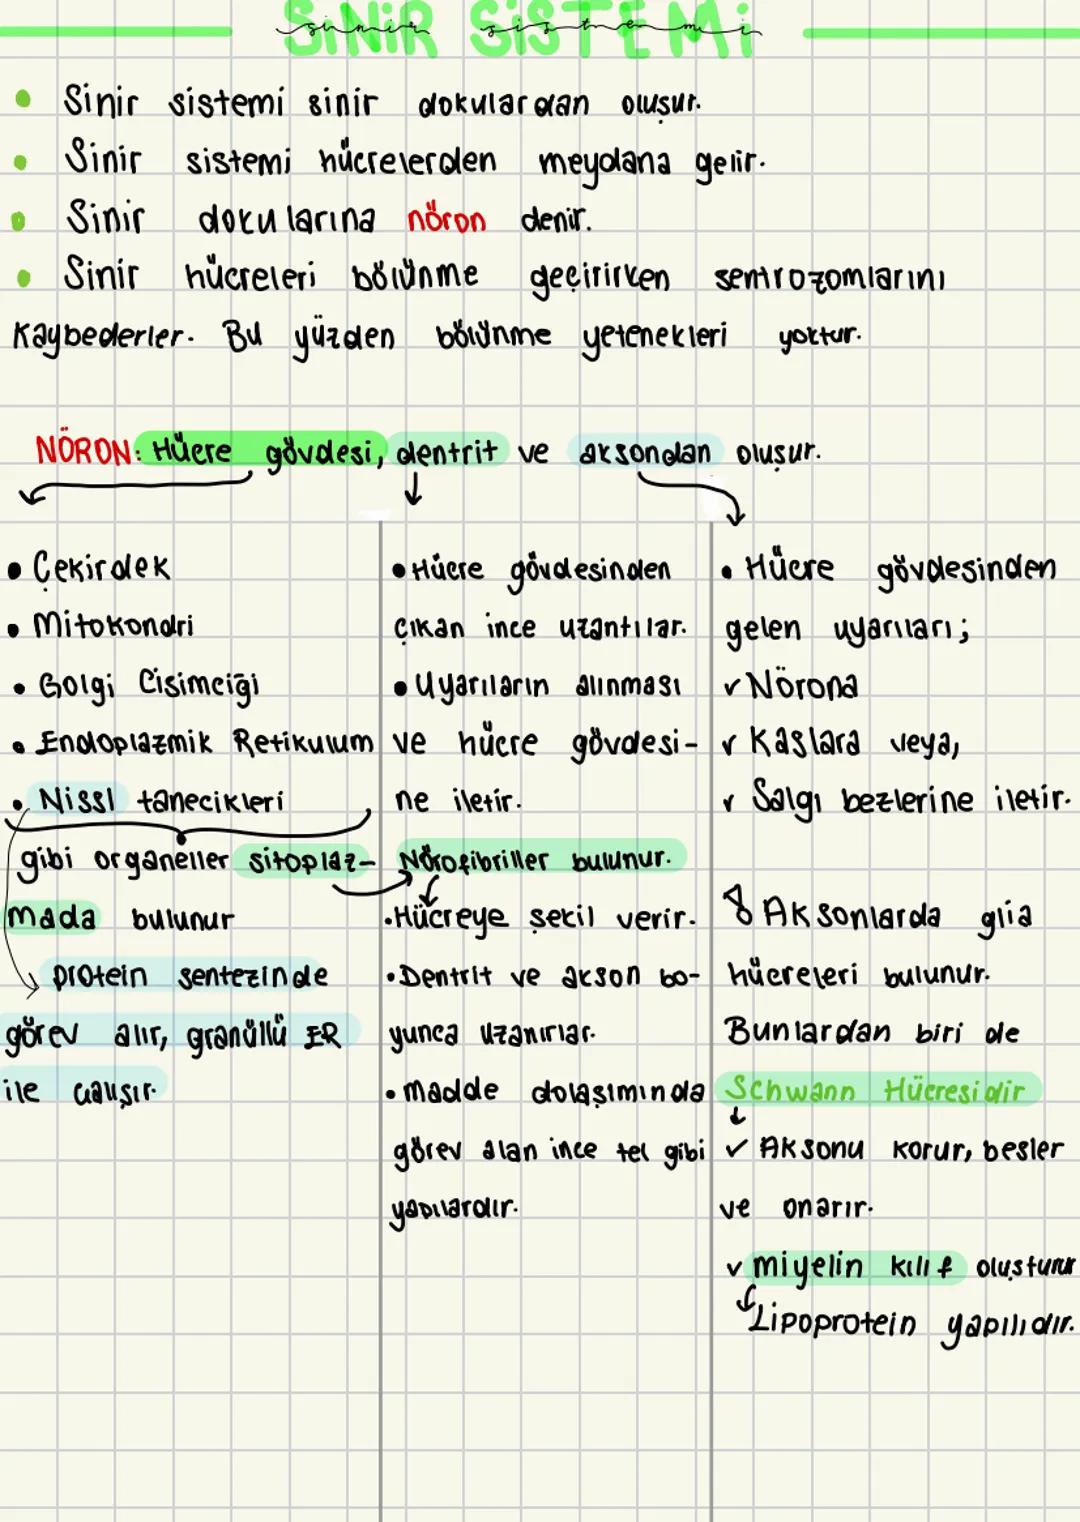 SİNİR SİSTEMİ
sinir sistemi
• Sinir sistemi sinir dokulardan oluşur.
• Sinir sistemi hücrelerden meydana gelir.
• Sinir dokularına nöron denir.
• Sinir hücreleri bölünme geçirirken sentrozomlarını
kaybederler. Bu yüzden bölünme yetenekleri yoktur.
NÖRON: Hücre gövdesi, dentrit ve aksondan oluşur.
• Çekirdek
• Mitokondri
• Golgi Cisimciği
• Endoplazmik Retikulum
• Nissl tanecikleri
gibi organeller sitoplaz-
mada bulunur
protein sentezinde
görev alır, granüllü ER
ile çalışır.
• Hücre gövdesinden
çıkan ince uzantılar.
• Uyarıların alınması
ve hücre gövdesi-
ne iletir.
Nörofibriller bulunur.
• Hücreye şekil verir.
• Dentrit ve akson bo-
yunca uzanırlar.
• madde dolaşımında
görev alan ince tel gibi
yapılardır.
• Hücre gövdesinden
gelen uyarıları;
✓ Nörona
✓ Kaslara veya,
✓ Salgı bezlerine iletir.
Aksonlarda glia
hücreleri bulunur.
Bunlardan biri de
Schwann Hücresidir
✓ Aksonu korur, besler
ve onarır.
✓ miyelin kılıf oluşturur
Lipoprotein yapılıdır.